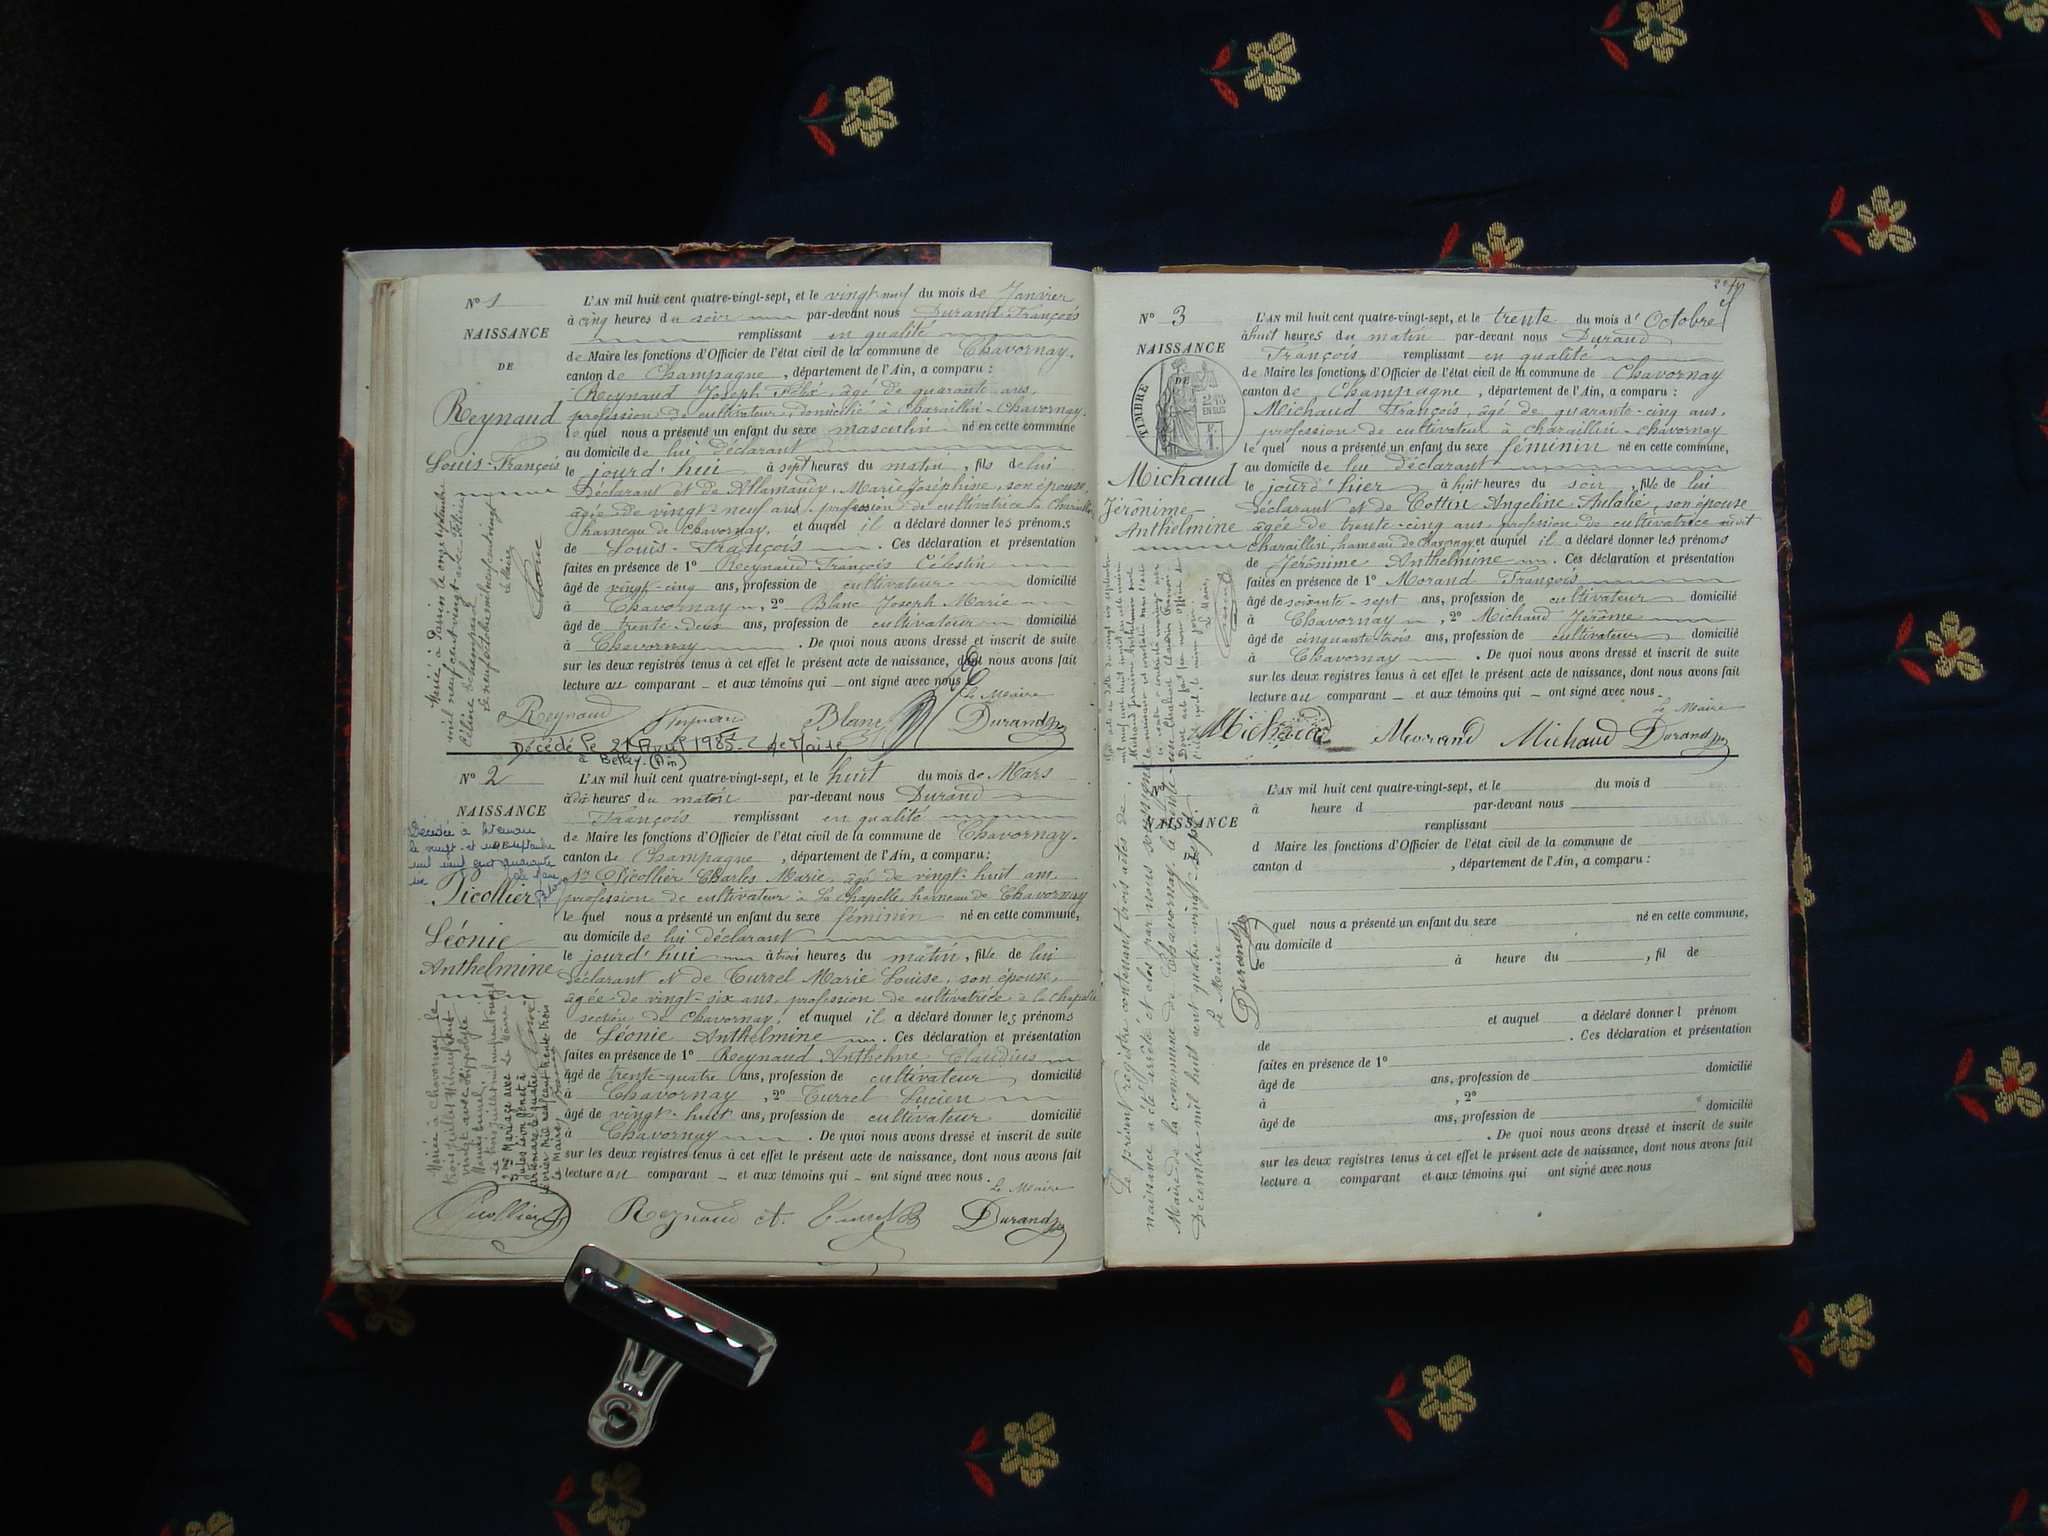 N° 1
NAISSANCE
DE
Reynaud
Louis-François
L'AN mil huit cent quatre-vingt-sept, et le vingt-neuf du mois de Janvier
à cinq heures du soir par-devant nous Durand François
remplissant en qualité
de Maire les fonctions d'Officier de l'état civil de la commune de Chavornay.
canton de Champagne, département de l'Ain, a comparu :
Reynaud Joseph Félix, âgé de quarante ans,
profession de cultivateur, domicilié à Charaillin-Chavornay.
lequel nous a présenté un enfant du sexe masculin né en cette commune
au domicile de lui déclarant
le jourd'hui à sept heures du matin, fils de lui
Déclarant et de Allamandy, Marie Joséphine, son épouse,
âgée de vingt-neuf ans, profession de cultivatrice à Charaillin
hameau de Chavornay. et auquel il a déclaré donner les prénoms
de Louis-François. Ces déclaration et présentation
faites en présence de 1° Reynaud François Célestin
âgé de vingt-cinq ans, profession de cultivateur domicilié
à Chavornay, 2° Blanc Joseph Marie
âgé de trente-deux ans, profession de cultivateur domicilié
à Chavornay. De quoi nous avons dressé et inscrit de suite
sur les deux registres tenus à cet effet le présent acte de naissance, dont nous avons fait
lecture au comparant et aux témoins qui ont signé avec nous
Le Maire
Reynaud Reynaud Blanc Durand
Marié à Parrin le onze septembre
mil neuf cent vingt avec Félicie
Céline
Le neuf octobre mil neuf cent vingt
Le Maire
Décédé le 21 Avril 1985 Le Maire
à Belley (Ain)
N° 2
NAISSANCE
Décédée à
le vingt et un septembre
mil neuf cent quarante
Le Maire
Picollier
Léonie
Anthelmine
L'AN mil huit cent quatre-vingt-sept, et le huit du mois de Mars
à dix heures du matin par-devant nous Durand
François remplissant en qualité
de Maire les fonctions d'Officier de l'état civil de la commune de Chavornay.
canton de Champagne, département de l'Ain, a comparu:
Picollier Charles Marie, âgé de vingt-huit ans
profession de cultivateur à La Chapelle, hameau de Chavornay
lequel nous a présenté un enfant du sexe féminin né en cette commune,
au domicile de lui déclarant
le jourd'hui à trois heures du matin, fille de lui
déclarant et de Turrel Marie Louise, son épouse,
âgée de vingt-six ans, profession de cultivatrice à la Chapelle
section de Chavornay, et auquel il a déclaré donner les prénoms
de Léonie Anthelmine. Ces déclaration et présentation
faites en présence de 1° Reynaud Anthelme Claudius
âgé de trente-quatre ans, profession de cultivateur domicilié
à Chavornay, 2° Turrel Lucien
âgé de vingt-huit ans, profession de cultivateur domicilié
à Chavornay. De quoi nous avons dressé et inscrit de suite
sur les deux registres tenus à cet effet le présent acte de naissance, dont nous avons fait
lecture au comparant et aux témoins qui ont signé avec nous.
Le Maire
Picollier Reynaud A. Turrel Durand
Mariée à Chavornay le
trois juillet mil neuf cent
vingt avec Hippolyte
Le trois juillet mil neuf cent vingt
Le Maire
2me Mariage avec
Jules Léon Genet à
Artemare le quatre
février mil neuf cent trente trois
Le Maire
N° 3
NAISSANCE
DE
TIMBRE
Michaud
Jérônime
Anthelmine
L'AN mil huit cent quatre-vingt-sept, et le trente du mois d'Octobre
à huit heures du matin par-devant nous Durand
François remplissant en qualité
de Maire les fonctions d'Officier de l'état civil de la commune de Chavornay
canton de Champagne, département de l'Ain, a comparu :
Michaud François, âgé de quarante-cinq ans,
profession de cultivateur à Charaillin-Chavornay
lequel nous a présenté un enfant du sexe féminin né en cette commune,
au domicile de lui déclarant
le jourd'hier à huit heures du soir, fille de lui
déclarant et de Cottin Angeline Eulalie, son épouse
âgée de trente-cinq ans, profession de cultivatrice audit
Charaillin, hameau de Chavornay, et auquel il a déclaré donner les prénoms
de Jérônime Anthelmine. Ces déclaration et présentation
faites en présence de 1° Morand François
âgé de soixante-sept ans, profession de cultivateur domicilié
à Chavornay, 2° Michaud Jérôme
âgé de cinquante-trois ans, profession de cultivateur domicilié
à Chavornay. De quoi nous avons dressé et inscrit de suite
sur les deux registres tenus à cet effet le présent acte de naissance, dont nous avons fait
lecture au comparant et aux témoins qui ont signé avec nous.
Le Maire
Michaud Morand Michaud Durand
NAISSANCE
L'AN mil huit cent quatre-vingt-sept, et le du mois d
à heure d par-devant nous
remplissant
d Maire les fonctions d'Officier de l'état civil de la commune de
canton d , département de l'Ain, a comparu :
quel nous a présenté un enfant du sexe né en cette commune,
au domicile d
le à heure du , fil de
et auquel a déclaré donner l prénom
de . Ces déclaration et présentation
faites en présence de 1°
âgé de ans, profession de domicilié
à , 2°
âgé de ans, profession de domicilié
à . De quoi nous avons dressé et inscrit de suite
sur les deux registres tenus à cet effet le présent acte de naissance, dont nous avons fait
lecture a comparant et aux témoins qui ont signé avec nous
Le présent registre contenant trois actes de
naissance a été arrêté et clos par nous soussigné
Maire de la commune de Chavornay, le trente-un
Décembre mil huit cent quatre-vingt-sept.
Le Maire
Durand